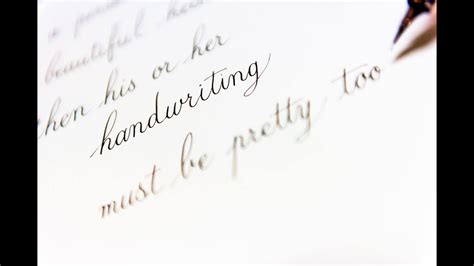 a person
beautiful hea
then his or her
handwriting
must be pretty too